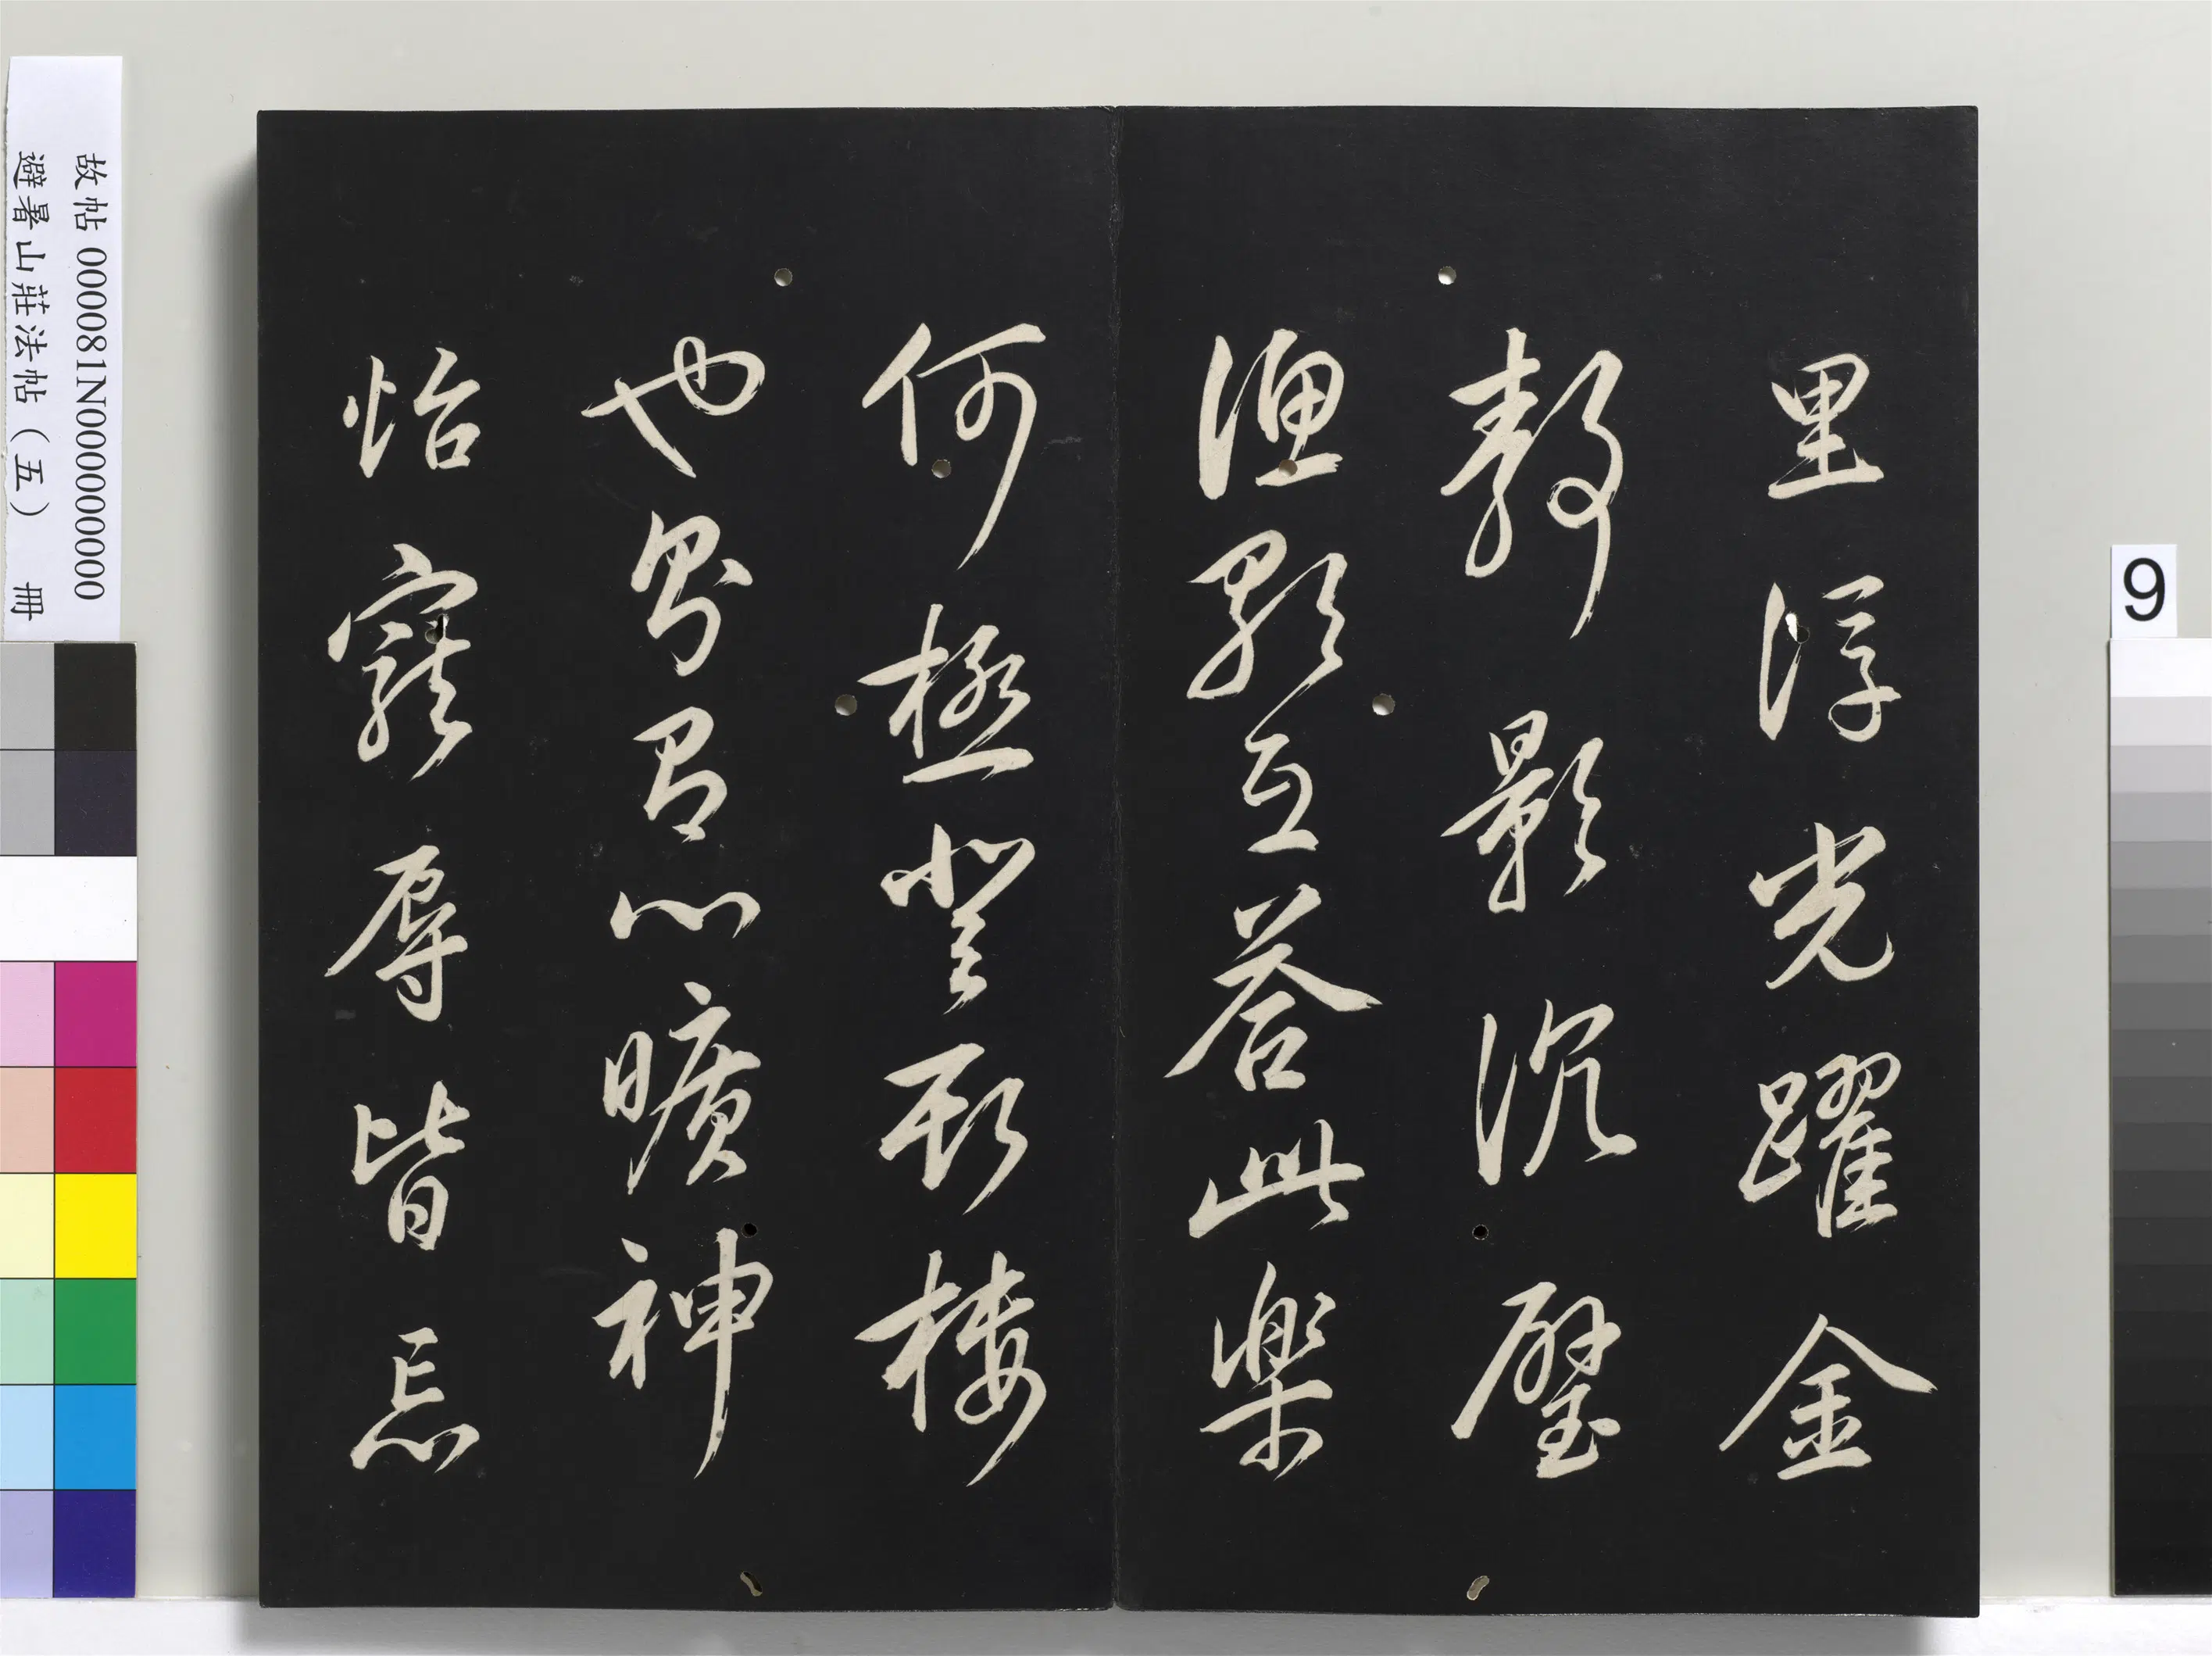 里浮光躍金
靜影沉璧
漁歌互荅此樂
何極登斯樓
也則有心曠神
怡寵辱皆忘
故帖 000081N000000000
避暑山莊法帖（五） 冊
9